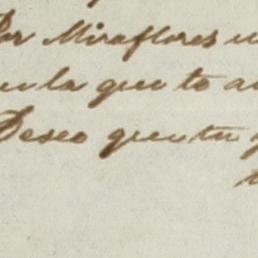 Por Miraflores
la que te
Deseo que tu